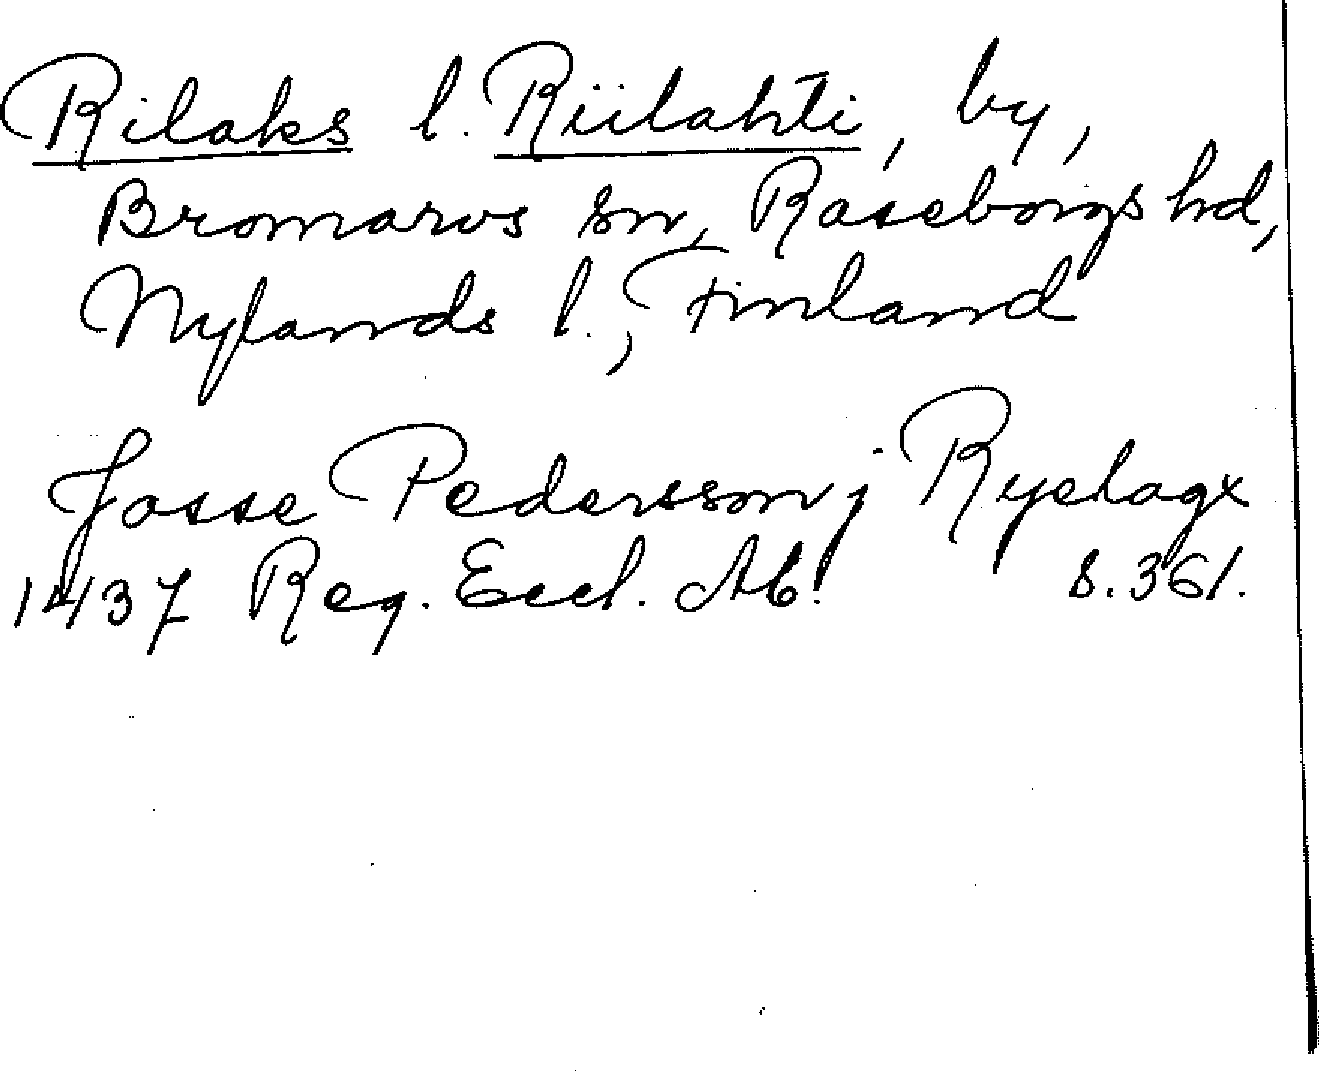 Rilaks l. Riilahti, by,
Bromarvs sn, Raseborgs hd,
Nylands l., Finland
Josse Pedersson j Ryelagx
1437 Reg. Eccl. Ab. s. 361.